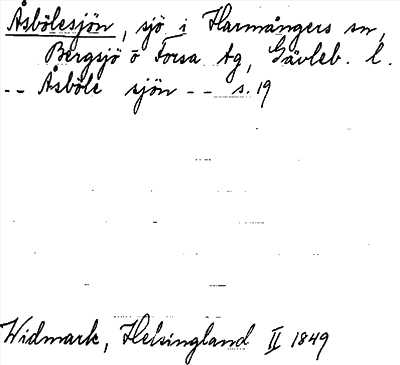 Åsbölesjön, sjö i Harmångers sn,
Bergsjö o Forsa tg, Gävleb. l.
-- Åsböle sjön -- s. 19
Widmark, Helsingland II 1849